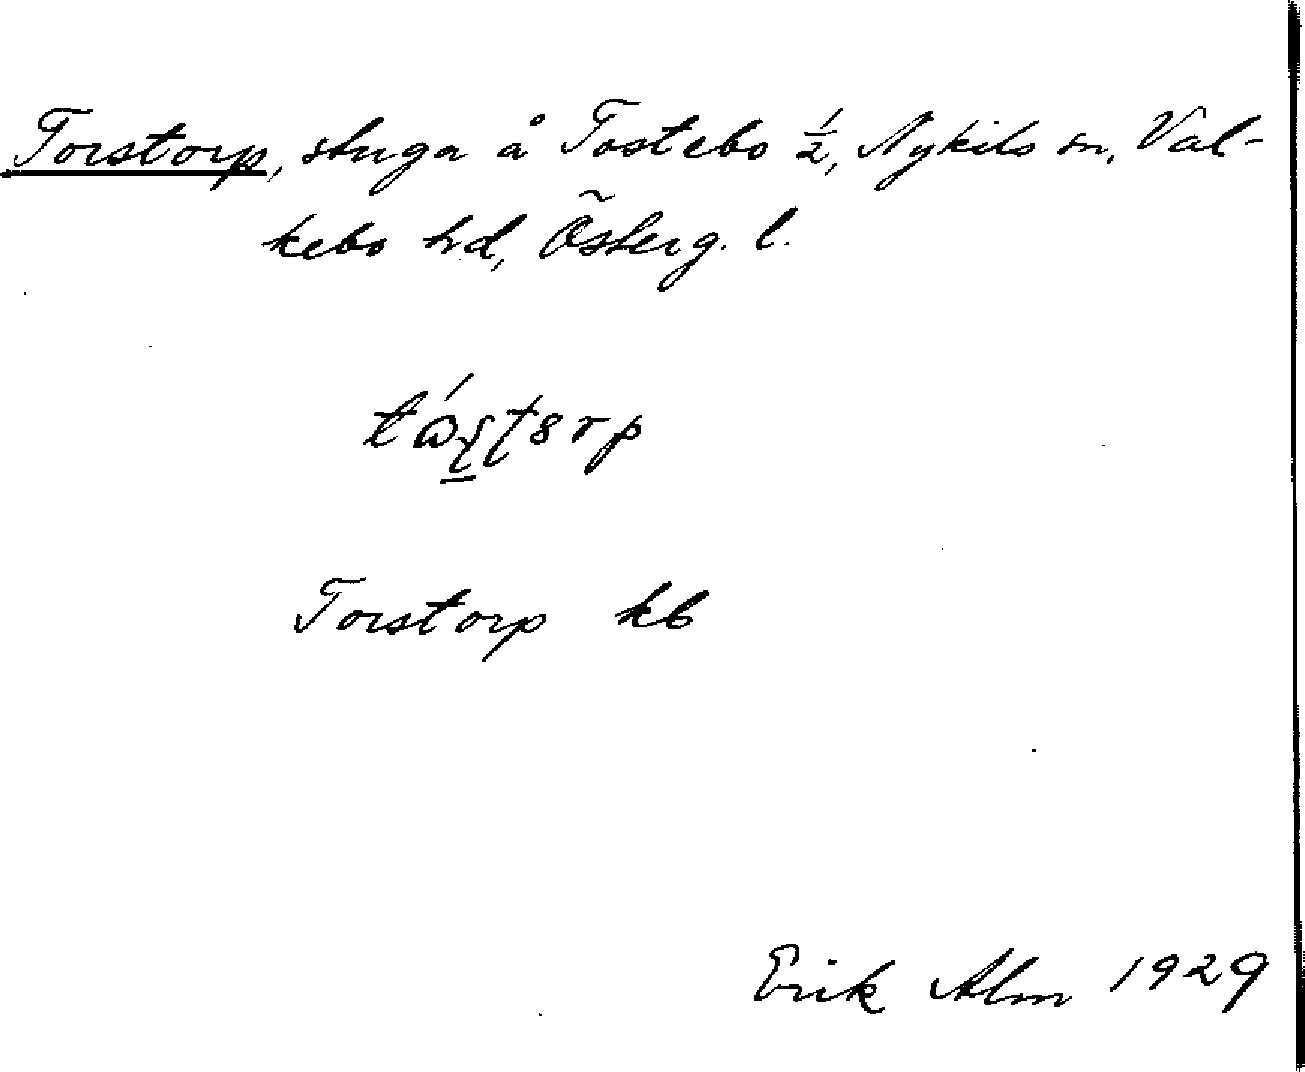 Torstorp, stuga å Tostebo ½, Nykils sn, Val-
kebo hd, Österg. l.
Torstorp kb
Erik Alm 1929